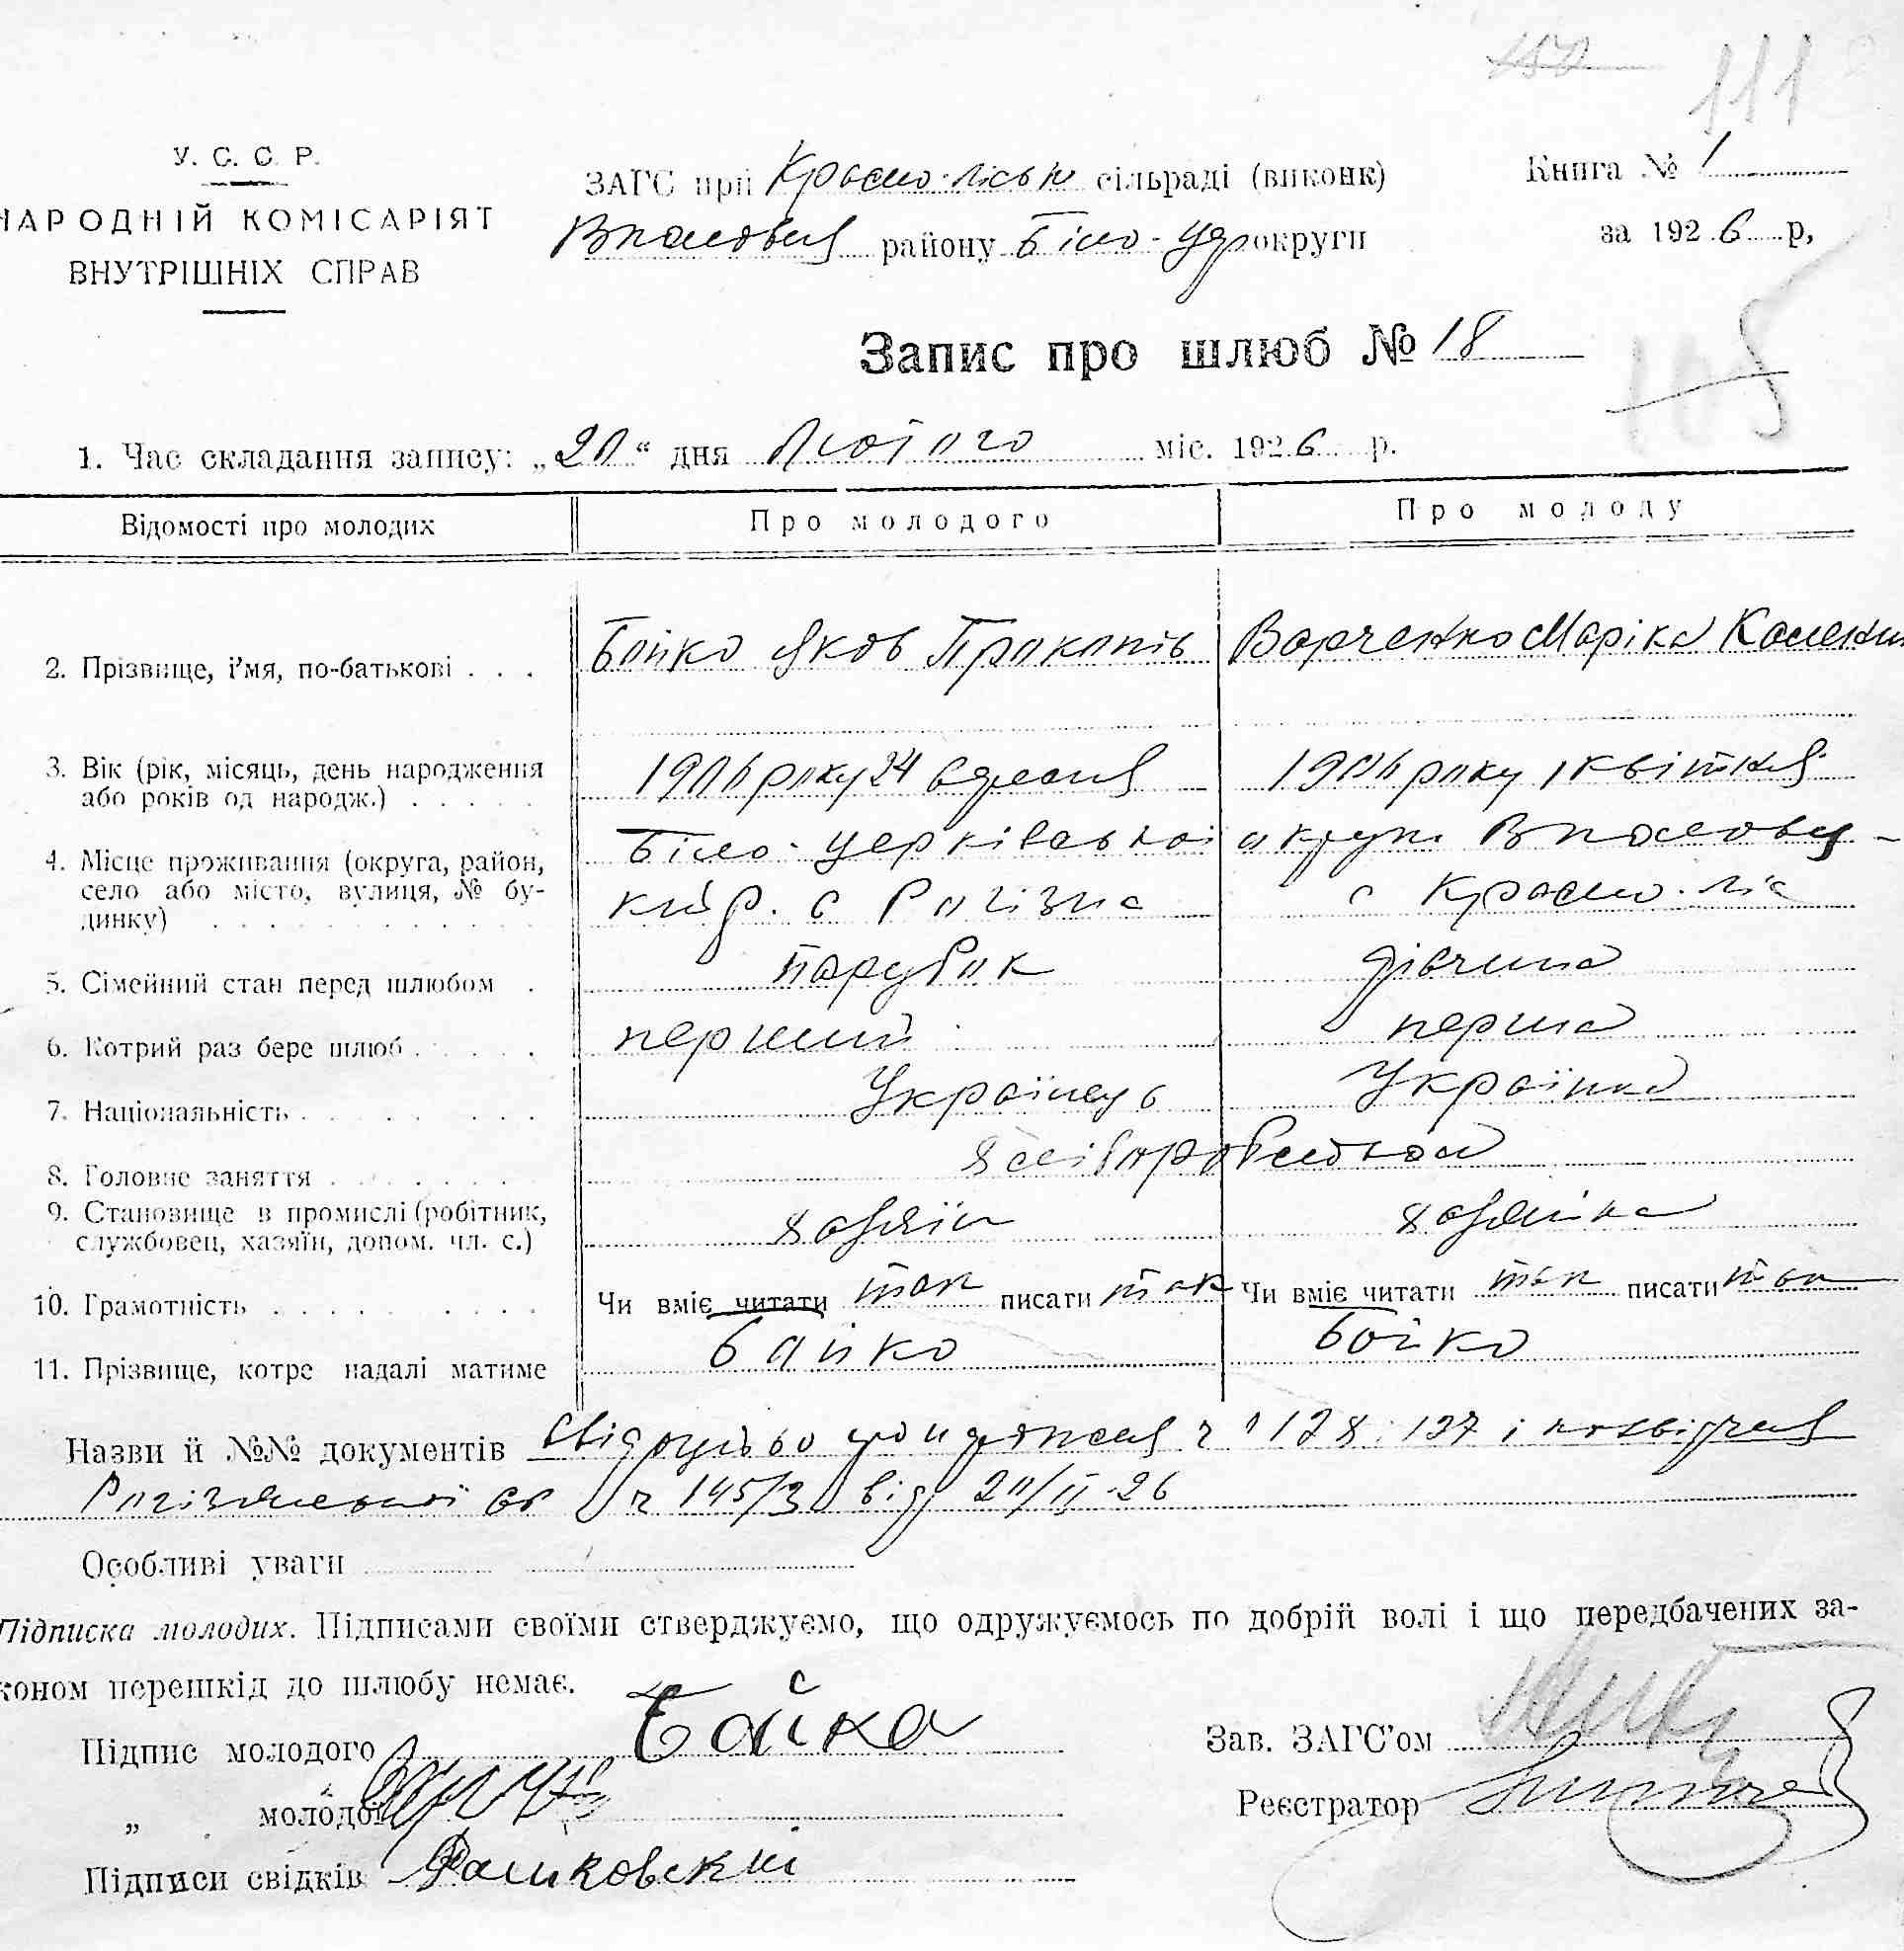 111
У. С. С. Р.
НАРОДНІЙ КОМІСАРІЯТ
ВНУТРІШНІХ СПРАВ
ЗАГС при Красно-ліськ сільраді (виконк)
району Біло-Цер округи
Книга № 1
за 1926 р,
105
Запис про шлюб № 18
1. Час складання запису: „20“ дня Лютого міс. 1926 р.
Відомості про молодих
Про молодого
Про молоду
2. Прізвище, і'мя, по-батькові . . .
Бойко Яков Прокопів
Варченко Маріка
3. Вік (рік, місяць, день народження
або років од народж.) . . . . .
1906 року 24
1906 року 1 квітня
4. Місце проживання (округа, район,
село або місто, вулиця, № бу-
динку) . . . . . . . . . . . .
Біло-церківської округи
кий р. с Рогізна
с Красно-ліс
5. Сімейний стан перед шлюбом .
парубок
дівчина
6. Котрий раз бере шлюб . . . . .
перший
перша
7. Національність . . . . . . . .
Українець
Українка
8. Головне заняття . . . . . . .
хліборобство
9. Становище в промислі (робітник,
службовец, хазяїн, допом. чл. с.)
хазяїн
хазяйка
10. Грамотність . . . . . . . . .
Чи вміє читати так писати так
Чи вміє читати так писати так
11. Прізвище, котре надалі матиме
Бойко
Бойко
Назви й №№ документів
ч 145/3 від 20/II-26
Особливі уваги
Підписка молодих. Підписами своїми стверджуємо, що одружуємось по добрій волі і що передбачених за-
коном перешкід до шлюбу немає.
Підпис молодого Бойко
„ молодої
Підписи свідків
Зав. ЗАГС'ом
Реєстратор